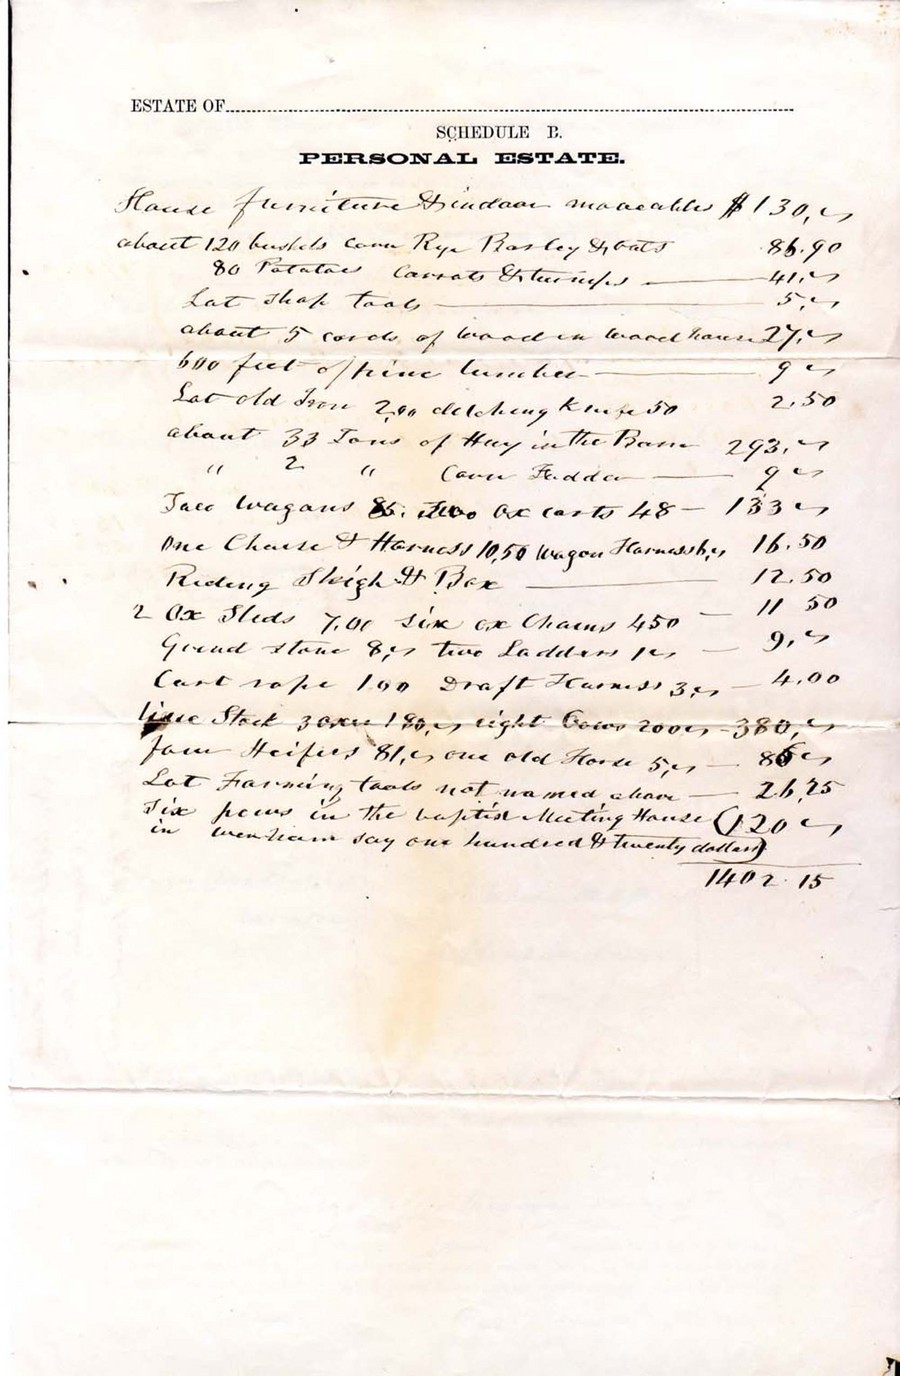 ESTATE OF
SCHEDULE B.
PERSONAL ESTATE.
House furniture & indoor moveables $130,,
about 120 bushels corn Rye Barley & oats 86.90
80 Potatoes Carrots & turnips 41,,
Lot shop tools 5,,
about 5 cords of wood in wood house 27,,
600 feet of pine lumber 9,,
Lot old Iron 2,00 knife 50 2.50
about 33 Tons of Hay in the Barn 293,,
" 2 " Corn Fodder 9,,
Two Wagons 85. two ox carts 48 133,,
One Chaise & Harness 10,50 Wagon Harness 6,, 16.50
Riding Sleigh & Box 12.50
2 Ox Sleds 7.00 six ox Chains 450 11 50
Grind stone 8,, two Ladders 1,, 9,,
Cart rope 100 Draft Harness 3,, 4.00
live Stock 3 oxen 180,, eight Cows 200,, 380,,
four Heifers 81,, one old Horse 5,, 86,,
Lot Farming tools not named above 26,25
Six pews in the baptist Meeting House (120,,
in wenham say one hundred & twenty dollars)
1402.15